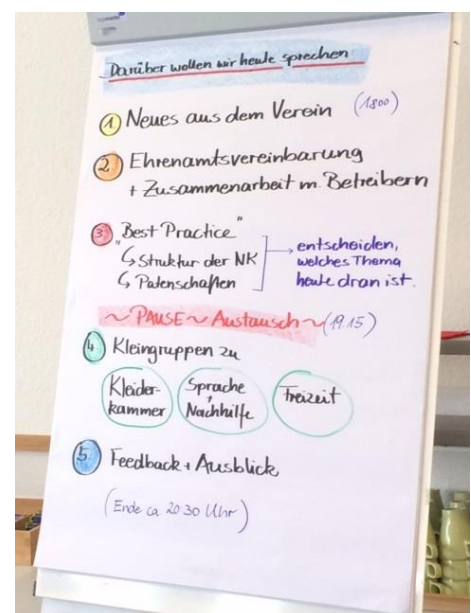 Darüber wollen wir heute sprechen
1 Neues aus dem Verein (1800)
2 Ehrenamtsvereinbarung
+ Zusammenarbeit m. Betreibern
3 "Best Practice"
↳ Struktur der NK
↳ Patenschaften
entscheiden,
welches Thema
heute dran ist.
~ PAUSE ~ Austausch ~ (19.15)
4 Kleingruppen zu
Kleider-
kammer
Sprache
+
Nachhilfe
Freizeit
5 Feedback + Ausblick
(Ende ca. 20.30 Uhr)